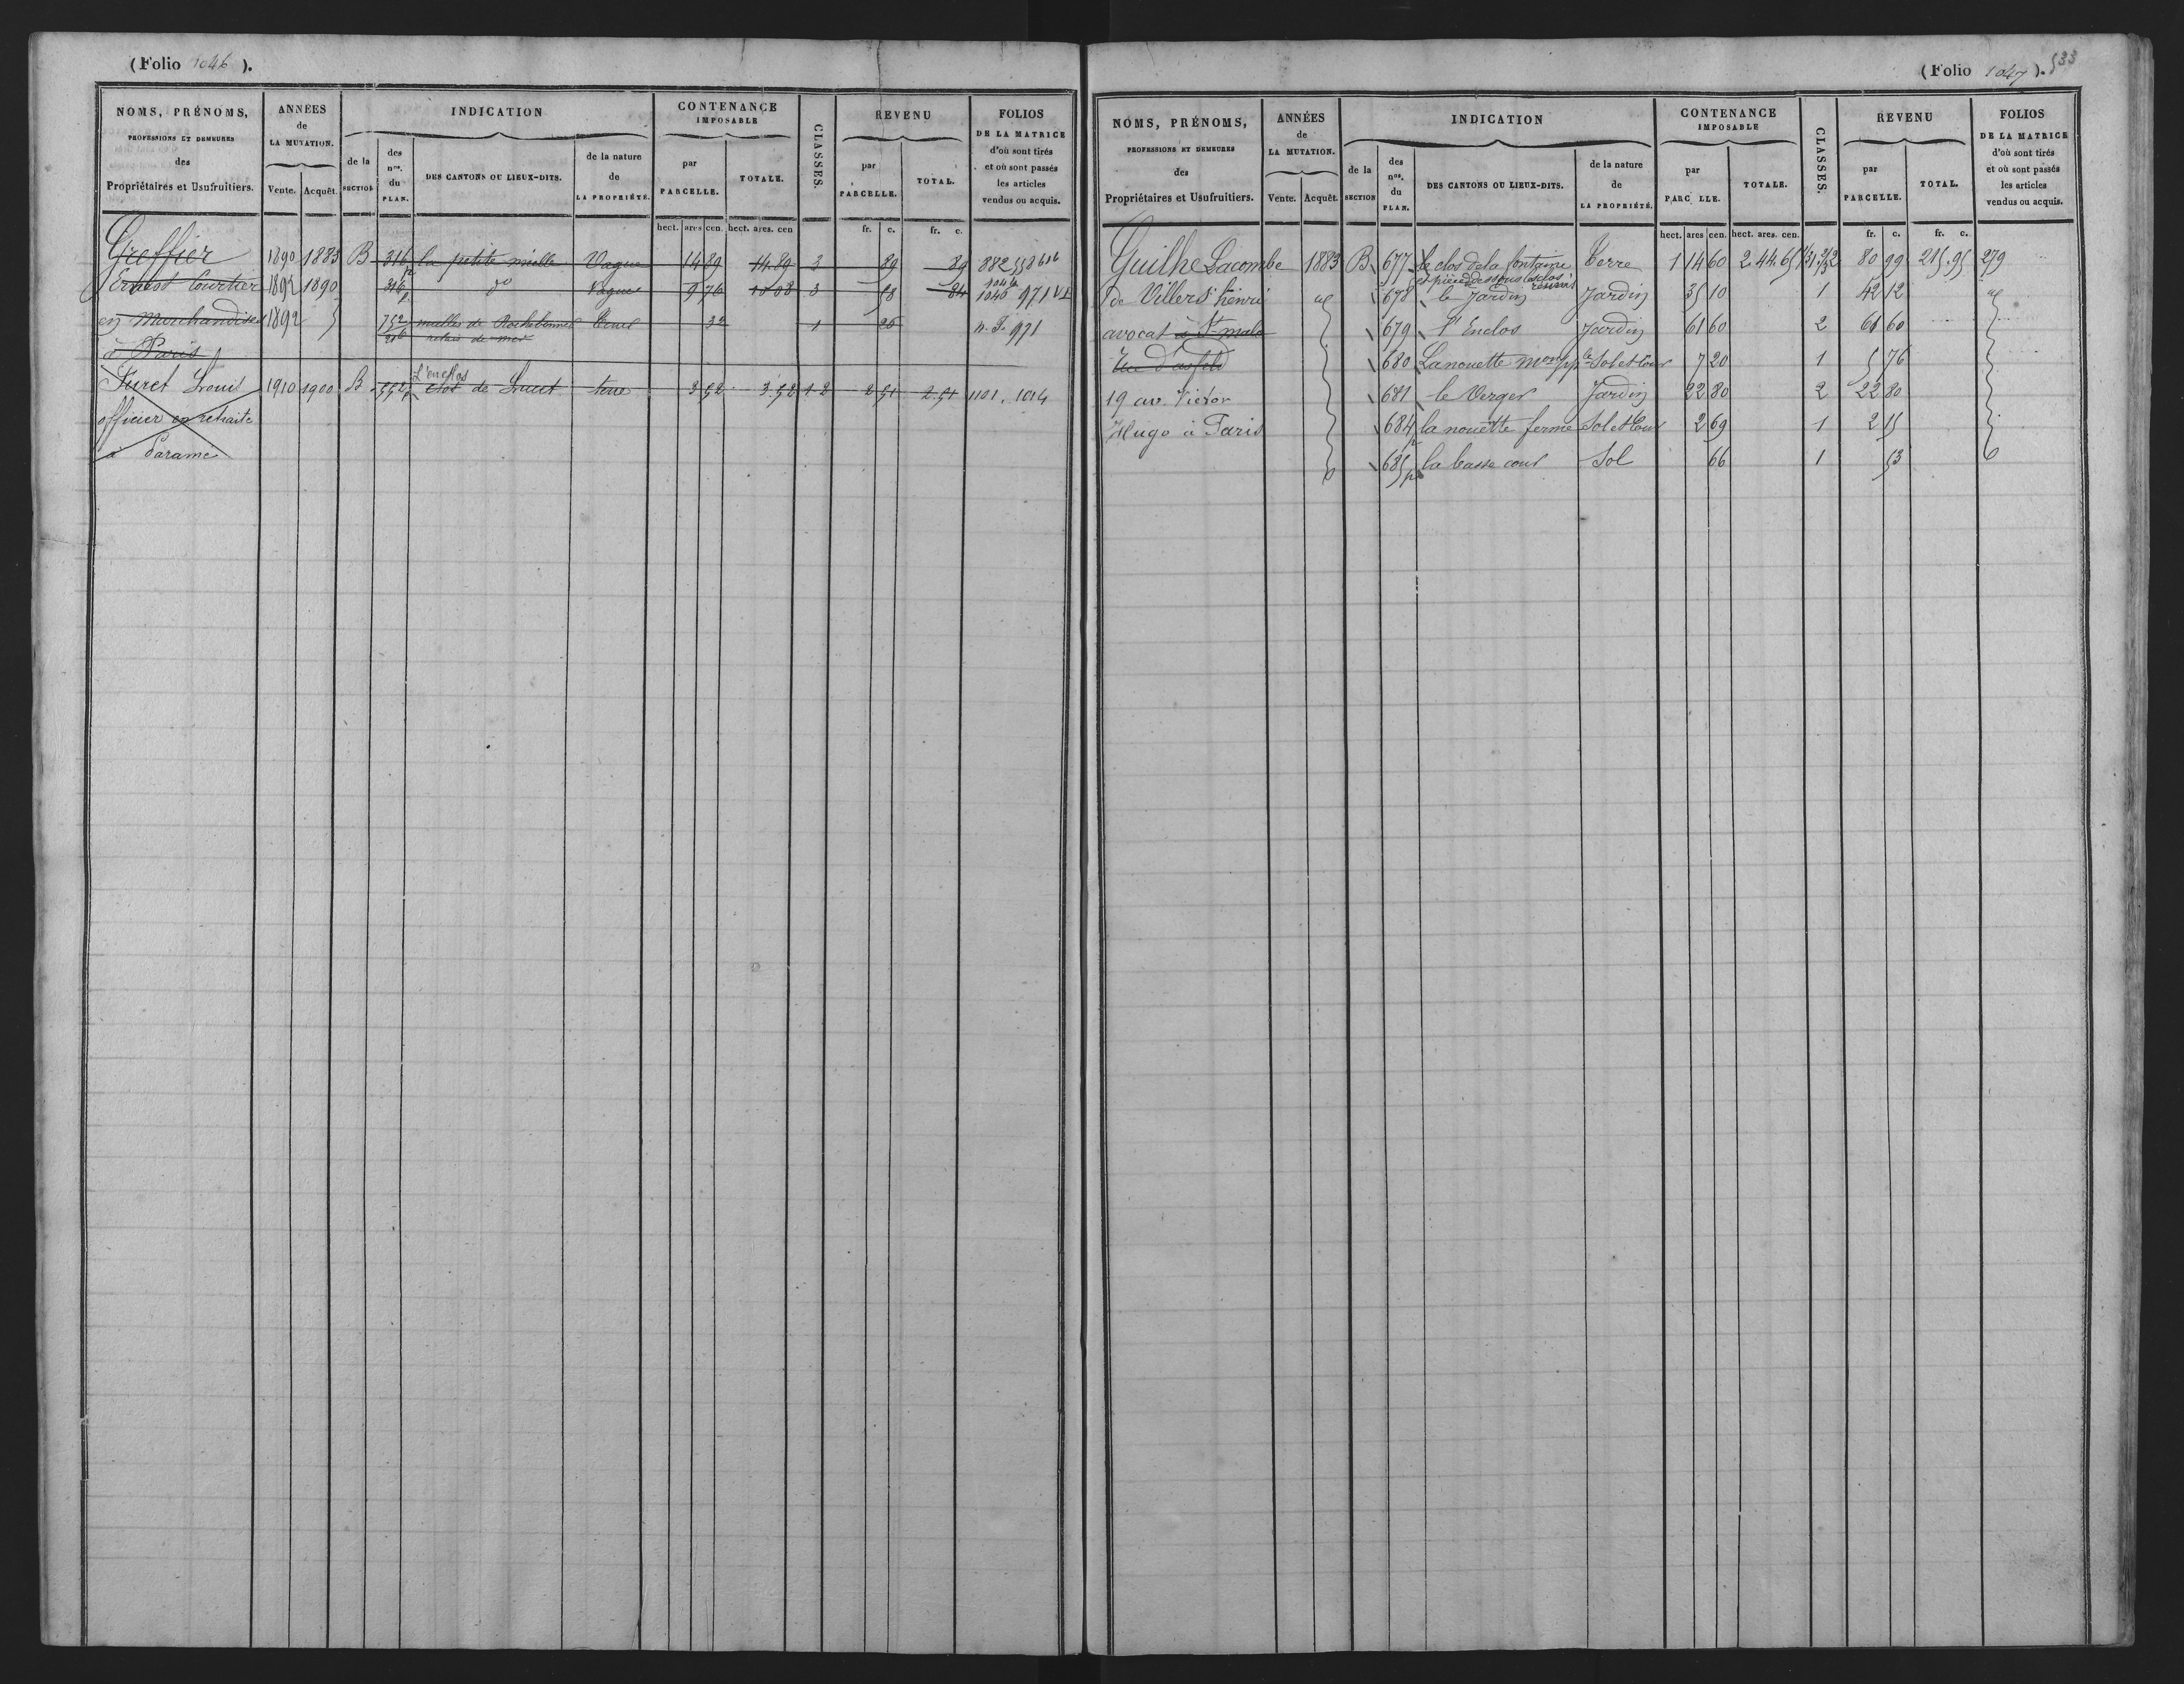 (Folio 1046).
NOMS, PRÉNOMS,
PROFESSIONS ET DEMEURES
des
Propriétaires et Usufruitiers.
ANNÉES
de
LA MUTATION.
Vente. Acquêt.
INDICATION
de la
SECTION
des
nos.
du
PLAN.
DES CANTONS OU LIEUX-DITS.
de la nature
de
LA PROPRIÉTÉ.
CONTENANCE
IMPOSABLE
par
PARCELLE.
TOTALE.
CLASSES.
REVENU
par
PARCELLE.
TOTAL.
FOLIOS
DE LA MATRICE
d'où sont tirés
et où sont passés
les articles
vendus ou acquis.
hect. ares cen. hect. ares. cen fr. c. fr. c.
Greffier 1890 1883 B 316p la petite mielle Vague 14 89 14.89 3 89 89 882 558
Ernest Courtier 1892 1890 316p do Vague 9 76 10 08 3 58 84 1046 971
en Marchandises 1892 752 mielles de Rochebonne Terre 32 1 26 n. F. 971
à Paris relais de mer
L'enclos
Furet Louis 1910 1900 B 552p clos de Lucet terre 3 52 3.52 1-2 2 51 2.51 1101. 1014
officier en retraite
à Paramé
(Folio 1047). 533
NOMS, PRÉNOMS,
PROFESSIONS ET DEMEURES
des
Propriétaires et Usufruitiers.
ANNÉES
de
LA MUTATION.
Vente. Acquêt.
INDICATION
de la
SECTION
des
nos.
du
PLAN.
DES CANTONS OU LIEUX-DITS.
de la nature
de
LA PROPRIÉTÉ.
CONTENANCE
IMPOSABLE
par
PARC LLE.
TOTALE.
CLASSES.
REVENU
par
PARCELLE.
TOTAL.
FOLIOS
DE LA MATRICE
d'où sont tirés
et où sont passés
les articles
vendus ou acquis.
hect. ares cen. hect. ares. cen. fr. c. fr. c.
Guilhe Lacombe 1883 B 677 le clos de la fontaine Terre 1 14 60 2.44.65 80 99 215.95 279
et pièce dessous le clos réunis
de Villers henri 678 le Jardin Jardin 35 10 1 42 12
avocat à St malo 679 l'Enclos Jardin 61 60 2 61 60
rue d'asfeld 680 La nouette mon pple Sol et Cour 7 20 1 5 76
19 av. Victor 681 le Verger Jardin 22 80 2 22 80
Hugo à Paris 684p la nouette ferme Sol et Cour 2 69 1 2 15
685p la basse cour Sol 66 1 53